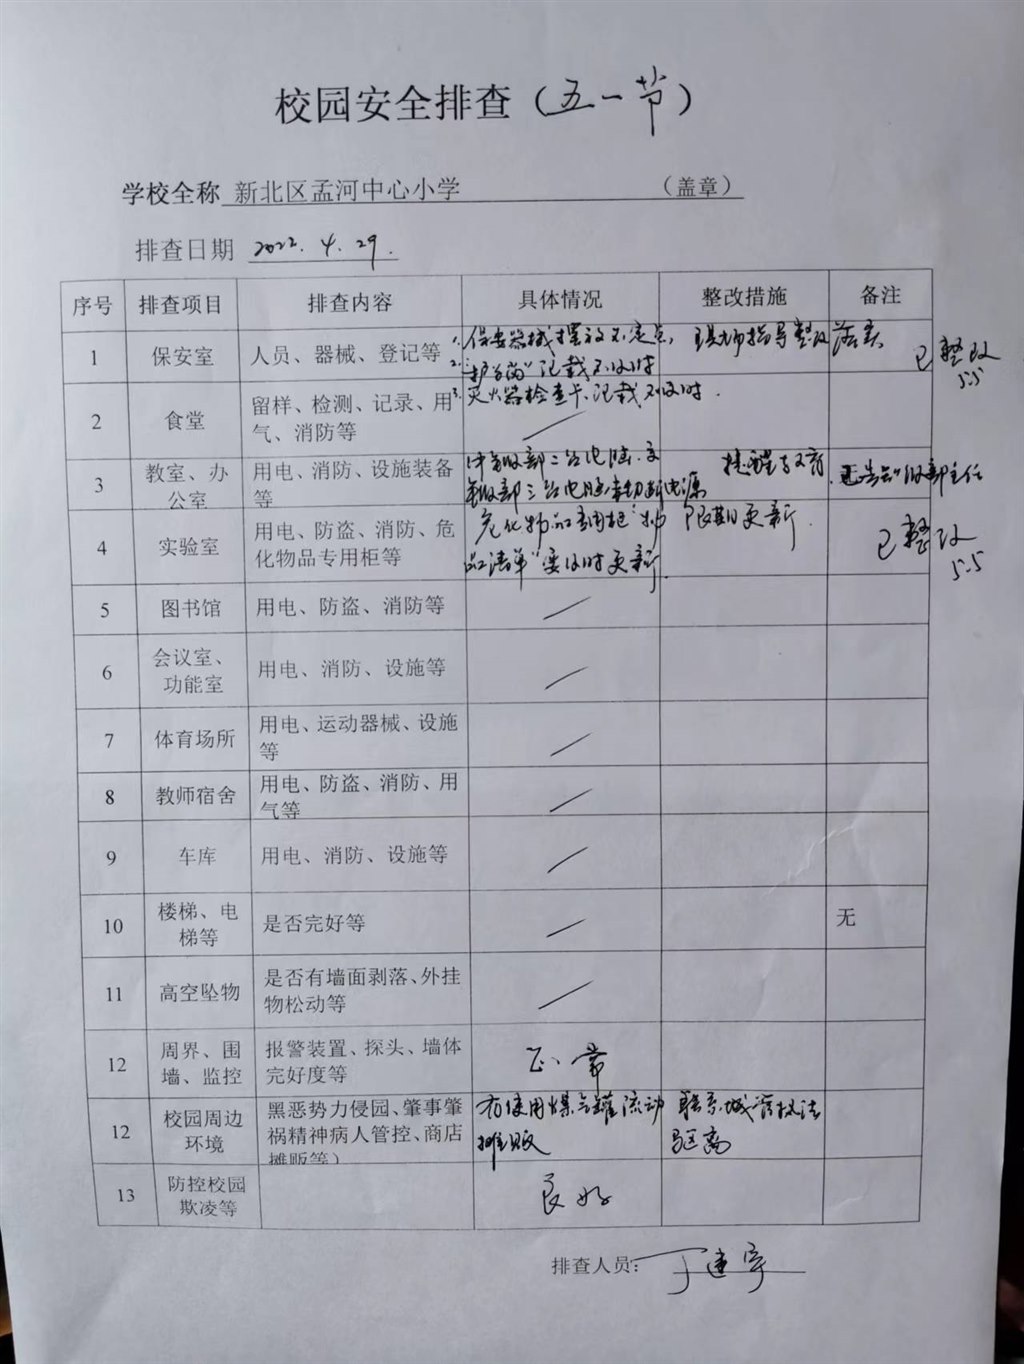 校园安全排查（五一节）
学校全称 新北区孟河中心小学 （盖章）
排查日期 2022.4.29.
序号 排查项目 排查内容 具体情况 整改措施 备注
1 保安室 人员、器械、登记等 1.保安器械摆放不定点， 现场指导整改落实 已整改
2."护学岗"记载不及时 5.5
3.灭火器检查卡记载不及时.
2 食堂 留样、检测、记录、用
气、消防等
3 教室、办
公室 用电、消防、设施装备
等 二台电脑
三台电脑 电源 提醒 主任
4 实验室 用电、防盗、消防、危
化物品专用柜等 危化物品专用柜"物
品清单"要及时更新. 限期更新. 已整改
5.5
5 图书馆 用电、防盗、消防等
6 会议室、
功能室 用电、消防、设施等
7 体育场所 用电、运动器械、设施
等
8 教师宿舍 用电、防盗、消防、用
气等
9 车库 用电、消防、设施等
10 楼梯、电
梯等 是否完好等 无
11 高空坠物 是否有墙面剥落、外挂
物松动等
12 周界、围
墙、监控 报警装置、探头、墙体
完好度等 正常
12 校园周边
环境 黑恶势力侵园、肇事肇
祸精神病人管控、商店
摊贩等） 有使用煤气罐流动
摊贩 联系城管执法
驱离
13 防控校园
欺凌等 良好
排查人员：丁建宇